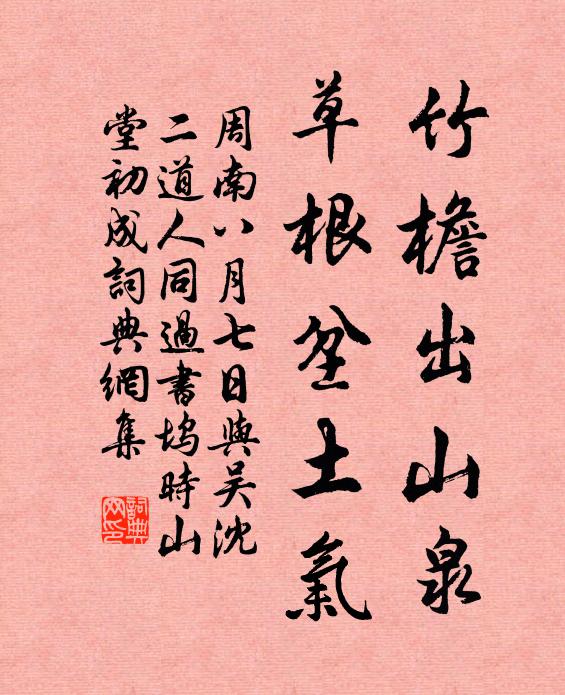 竹檐出山泉
草根坌土氣
周南八月七日與吴沈
二道人同過書塢時山
堂初成詞典網集
詞典
网印